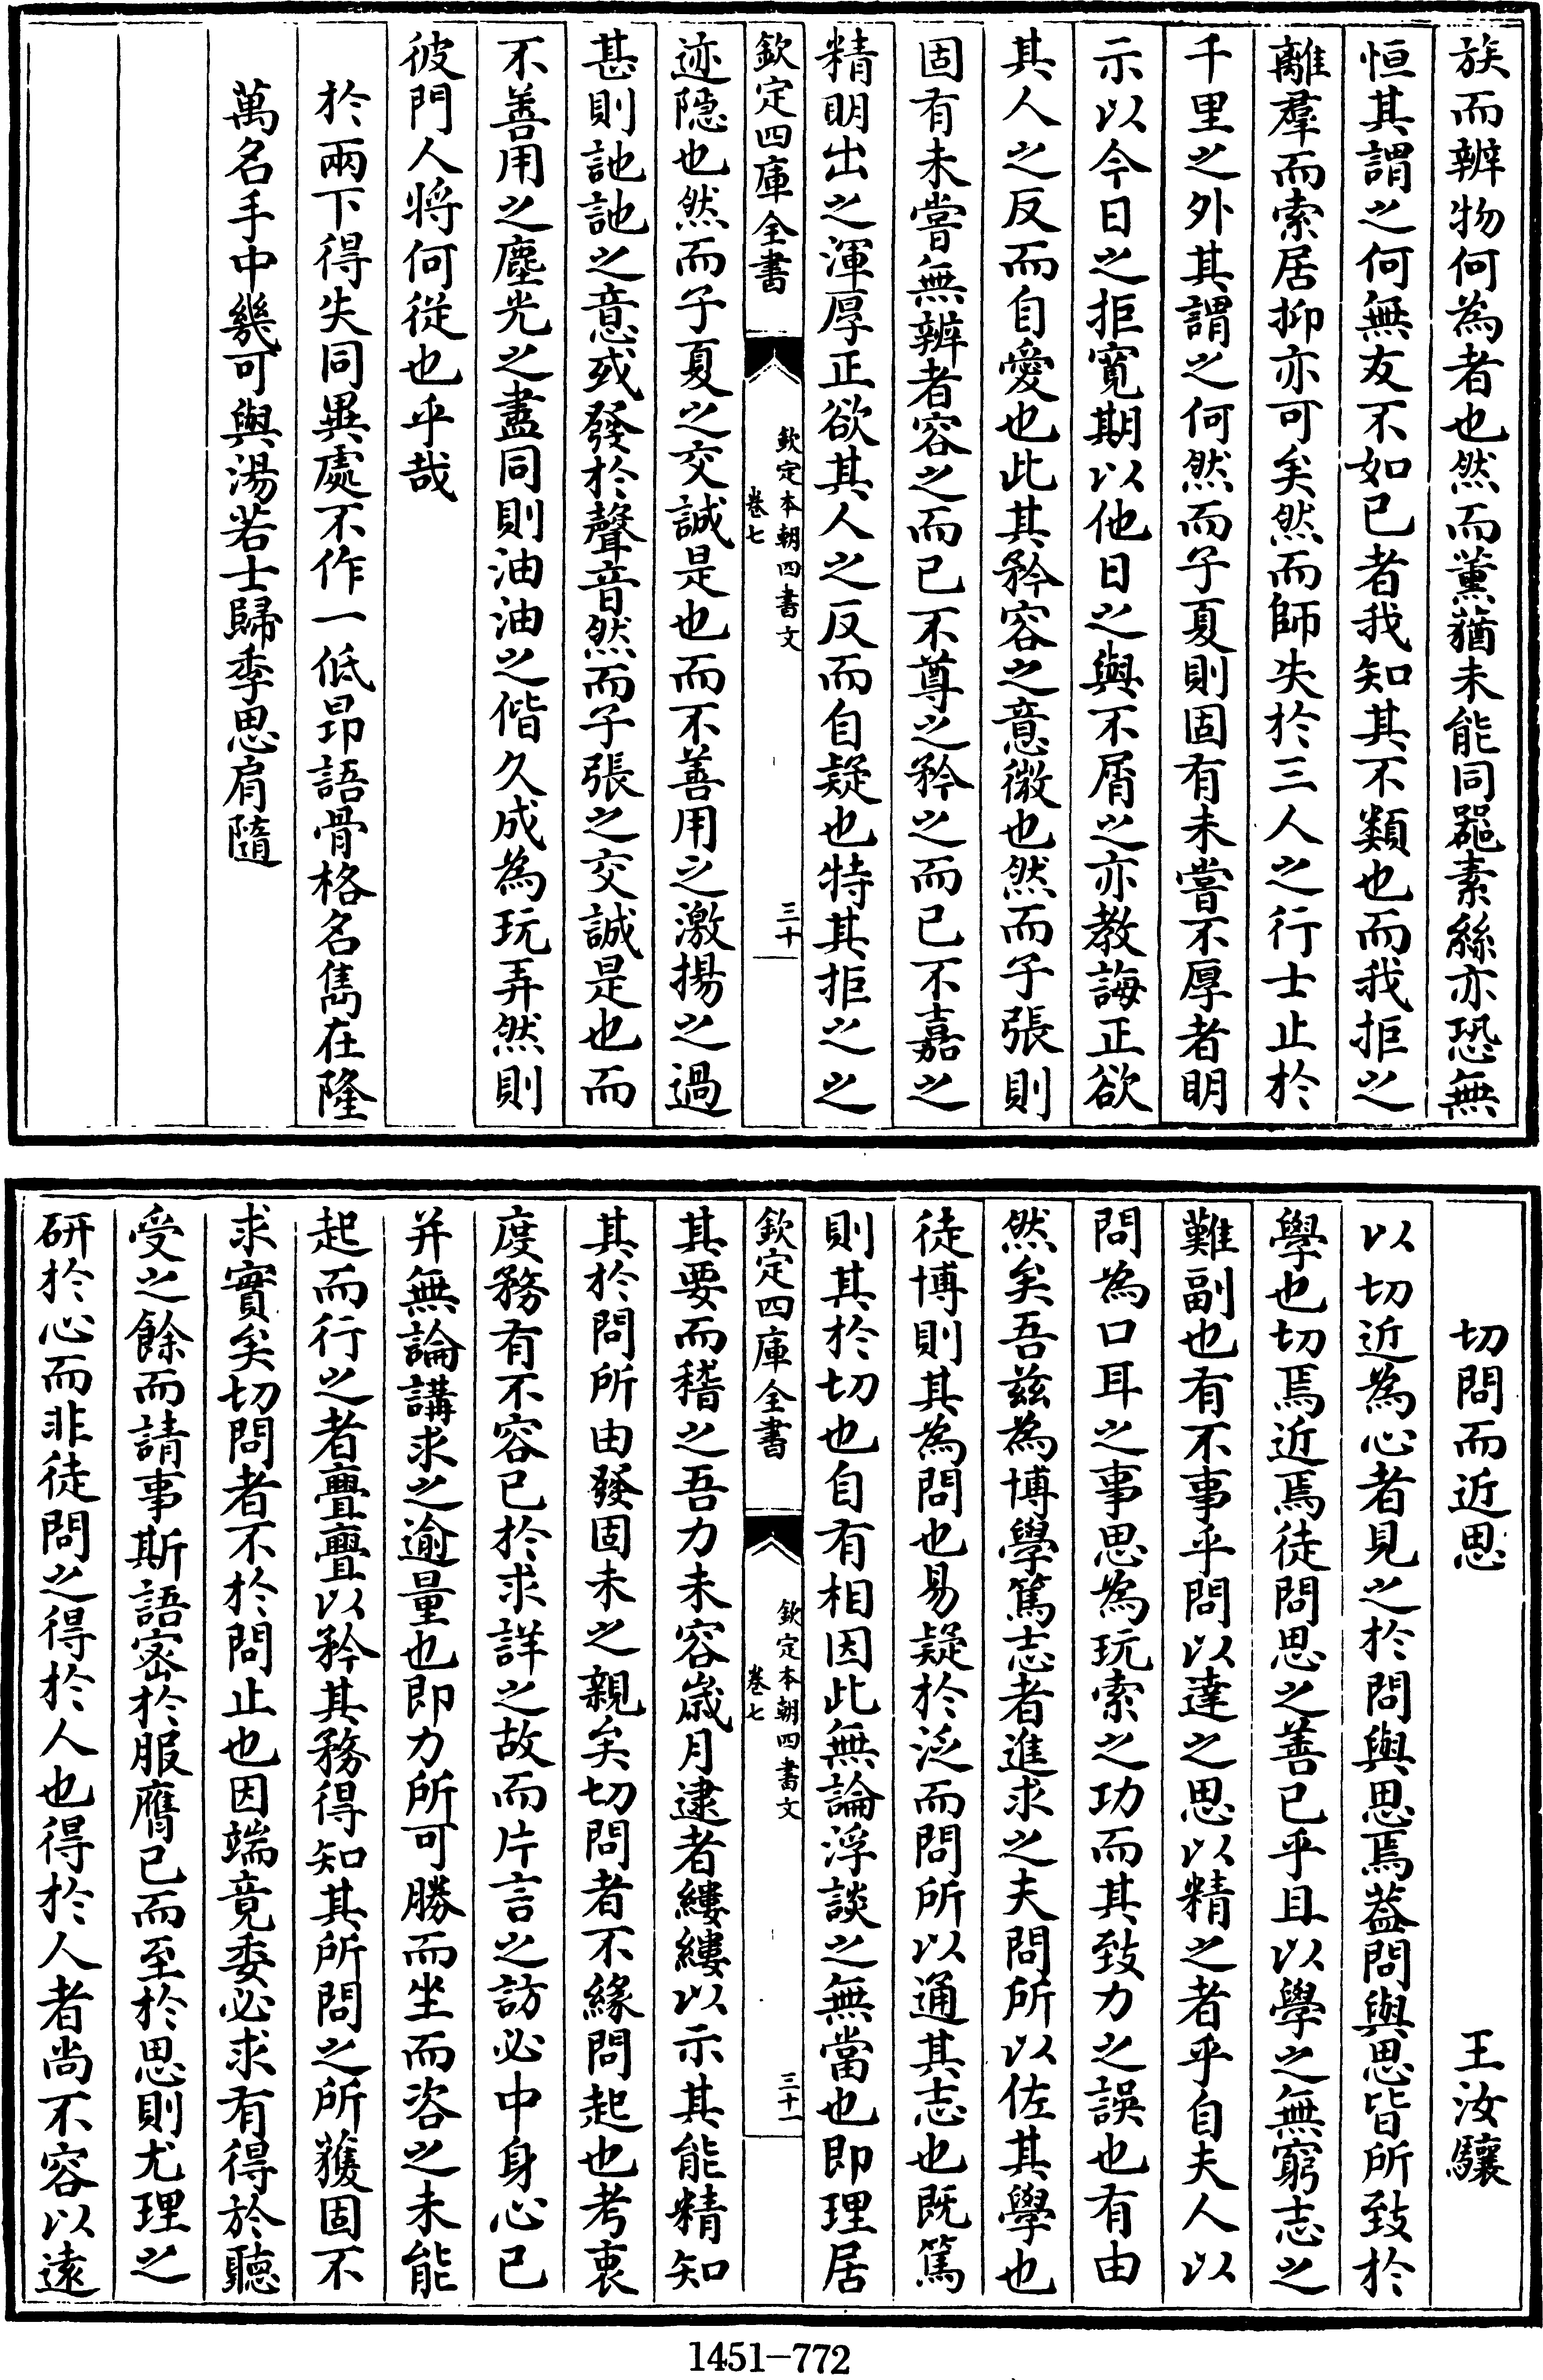 族而辨物何為者也然而薰蕕未能同噐素絲亦恐無
恒其謂之何無友不如已者我知其不類也而我拒之
離羣而索居抑亦可矣然而師失於三人之行士止於
千里之外其謂之何然而子夏則固有未嘗不厚者明
示以今日之拒寛期以他日之與不屑之亦教誨正欲
其人之反而自愛也此其矜容之意微也然而子張則
固有未嘗無辨者容之而已不尊之矜之而已不嘉之
精明出之渾厚正欲其人之反而自疑也特其拒之之
欽定四庫全書
欽定本朝四書文
卷七
三十
迹隱也然而子夏之交誠是也而不善用之激揚之過
甚則訑訑之意或發於聲音然而子張之交誠是也而
不善用之塵光之盡同則油油之偕久成為玩弄然則
彼門人將何從也乎哉
於兩下得失同異處不作一低昻語骨格名雋在隆
萬名手中幾可與湯若士歸季思肩隨
切問而近思
王汝驤
以切近為心者見之於問與思焉葢問與思皆所致於
學也切焉近焉徒問思之善已乎且以學之無窮志之
難副也有不事乎問以達之思以精之者乎自夫人以
問為口耳之事思為玩索之功而其致力之誤也有由
然矣吾兹為博學篤志者進求之夫問所以佐其學也
徒博則其為問也易疑於泛而問所以通其志也既篤
則其於切也自有相因此無論浮談之無當也即理居
欽定四庫全書
欽定本朝四書文
卷七
三十一
其要而稽之吾力未容嵗月逮者縷縷以示其能精知
其於問所由發固未之親矣切問者不緣問起也考衷
度務有不容已於求詳之故而片言之訪必中身心已
并無論講求之逾量也即力所可勝而坐而咨之未能
起而行之者亹亹以矜其務得知其所問之所獲固不
求實矣切問者不於問止也因端竟委必求有得於聽
受之餘而請事斯語密於服膺已而至於思則尤理之
研於心而非徒問之得於人也得於人者尚不容以遠
1451-772